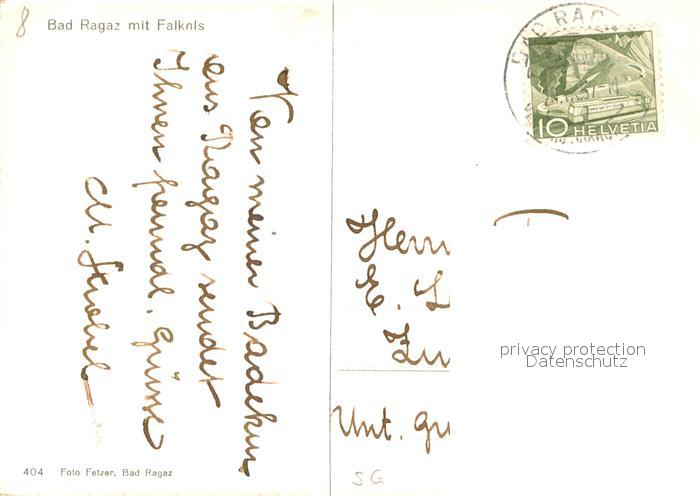 8
Bad Ragaz mit Falknis
Von meiner Badekur
aus Ragaz sendet
Ihnen freundl. Grüsse
M. Strobel
404 Foto Fetzer, Bad Ragaz
BAD RAGAZ
10 HELVETIA
Herrn
E.
privacy protection
Datenschutz
Unt.
SG